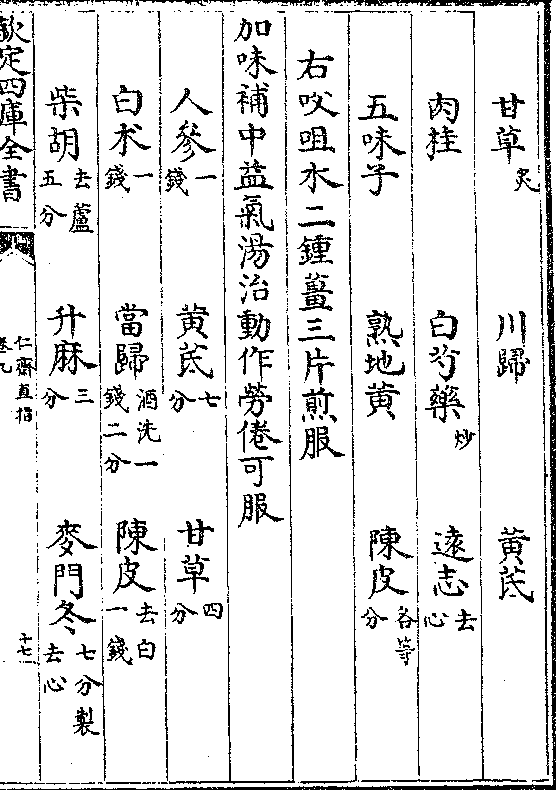 甘草炙 川歸 黄芪
肉桂 白芍藥炒 遠志去心
五味子 熟地黄 陳皮各等分
右㕮咀水二鍾薑三片煎服
加味補中益氣湯治動作勞倦可服
人參一錢 黄芪七分 甘草四分
白朮一錢 當歸酒洗一錢二分 陳皮去白一錢
柴胡去蘆五分 升麻三分 麥門冬七分製去心
欽定四庫全書 仁齋直指卷九 十七